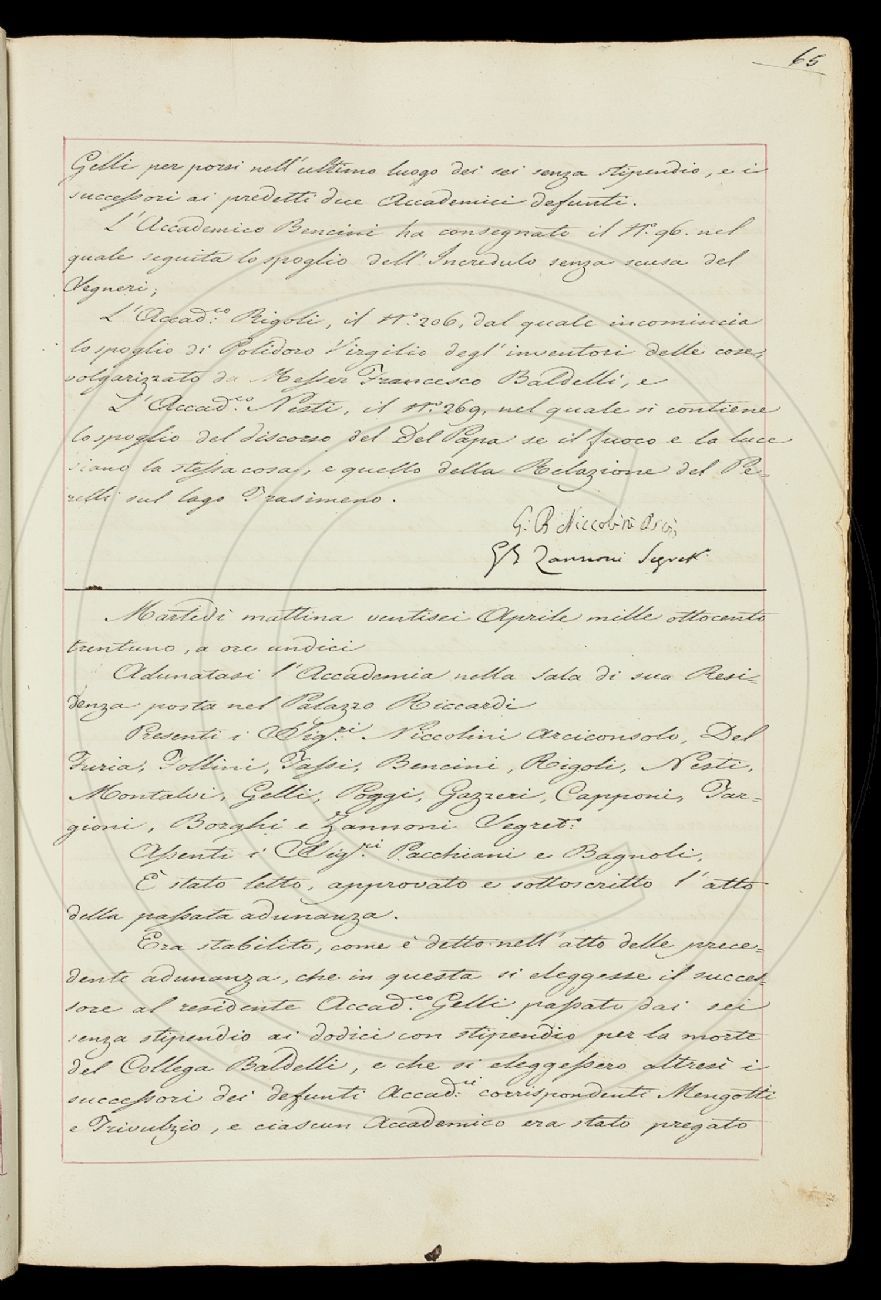 65
Gelli per porsi nell'ultimo luogo dei sei senza stipendio, e i
successori ai predetti due Accademici defunti.
L'Accademico Bencini ha consegnato il N.° 96. nel
quale seguita lo spoglio dell'Incredulo senza scusa del
Segneri;
L'Accad.co Rigoli, il N.° 206, dal quale incomincia
lo spoglio di Polidoro Virgilio degl'inventori delle cose,
volgarizzato da Messer Francesco Baldelli, e
L'Accad.co Nesti, il N.° 269, nel quale si contiene
lo spoglio del discorso del Del Papa se il fuoco e la luce
siano la stessa cosa, e quello della Relazione del Pe-
relli sul lago Trasimeno.
G. B. Niccolini
GB Zannoni Segret.
Martedì mattina ventisei Aprile mille ottocento
trentuno, a ore undici
Adunatasi l'Accademia nella sala di sua Resi-
denza posta nel Palazzo Riccardi
Presenti i Sig.ri Niccolini Arciconsolo, Del
Furia, Follini, Tassi, Bencini, Rigoli, Nesti,
Montalvi, Gelli, Poggi, Gazzeri, Capponi, Tar-
gioni, Borghi e Zannoni Segret.o
Assenti i Sig.ri Pacchiani e Bagnoli.
È stato letto, approvato e sottoscritto l'atto
della passata adunanza.
Era stabilito, come è detto nell'atto delle prece-
dente adunanza, che in questa si eleggesse il succes-
sore al residente Accad.co Gelli passato dai sei
senza stipendio ai dodici con stipendio per la morte
del Collega Baldelli, e che si eleggessero altresì i
successori dei defunti Accad.ci corrispondenti Mengotti
e Trivulzio, e ciascun Accademico era stato pregato